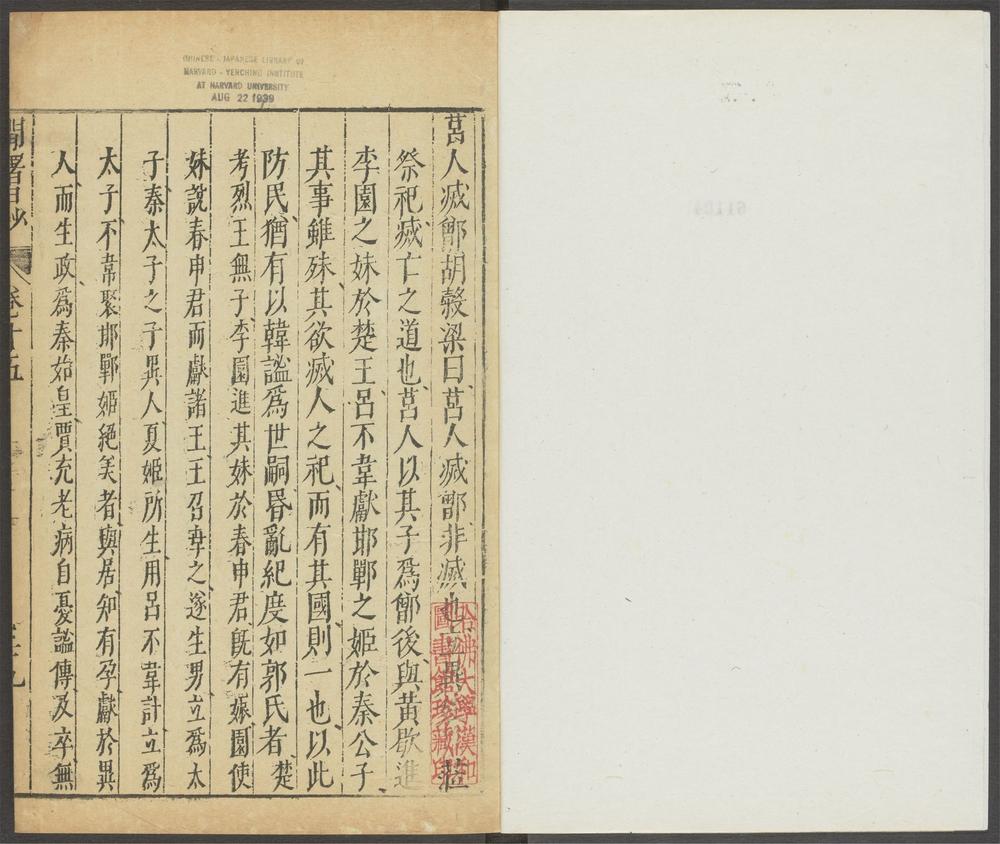 CHINESE - JAPANESE LIBRARY OF
HARVARD - YENCHING INSTITUTE
AT HARVARD UNIVERSITY
AUG 22 1939
莒人滅鄫胡穀梁曰莒人滅鄫非滅也 莅
祭祀滅亡之道也莒人以其子爲鄫後與黃歇進
李園之妹於楚王呂不韋獻邯鄲之姬於秦公子
其事雖殊其欲滅人之祀而有其國則一也以此
防民猶有以韓謐爲世嗣昏亂紀度如郭氏者楚
考烈王無子李園進其妹於春申君旣有娠園使
妹說春申君而獻諸王王召幸之遂生男立爲太
子秦太子之子異人夏姬所生用呂不韋計立爲
太子不韋娶邯鄲姬絕美者與居知有孕獻於異
人而生政爲秦始皇賈充老病自憂謚傳及卒無
日鈔 卷十五
哈佛大學漢和
圖書館珍藏印
61104